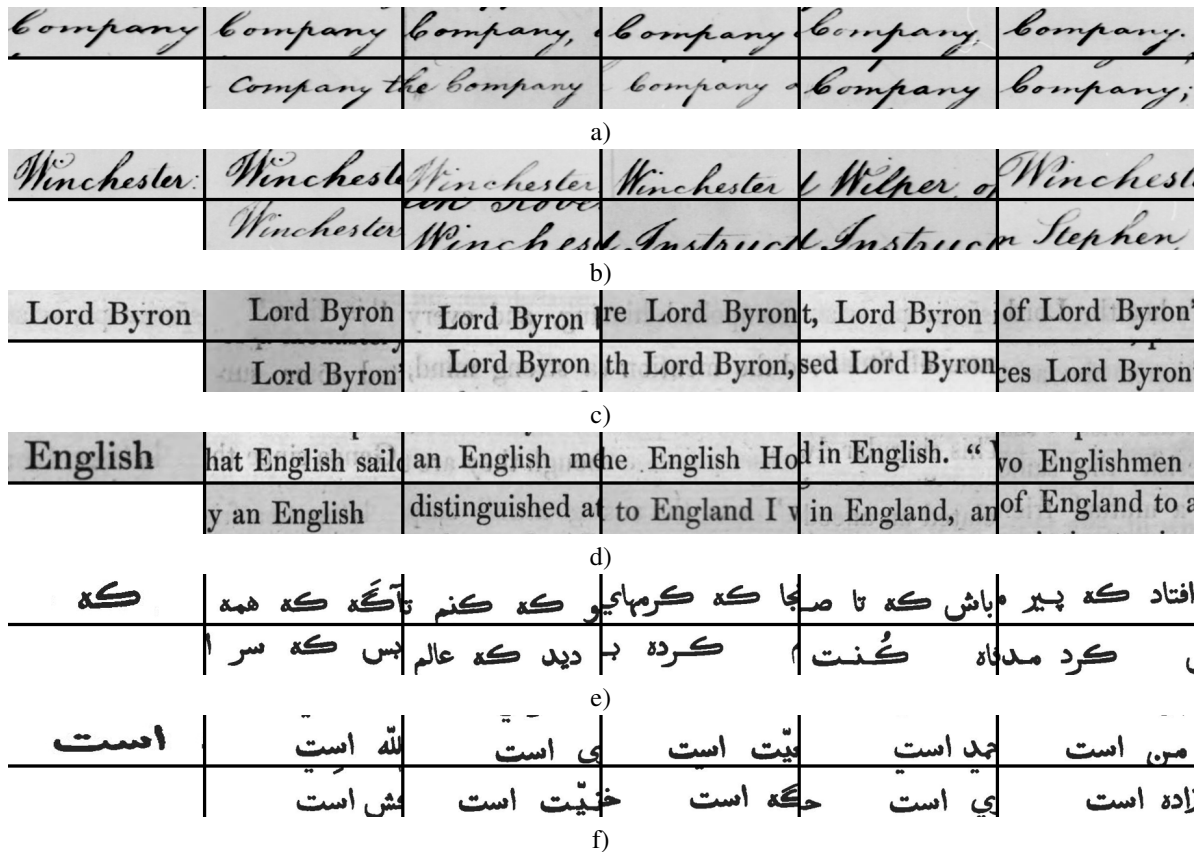 Company Company Company, Company Company, Company.
Company the Company Company Company Company;
a)
Winchester: Winchest Winchester Winchester Wilper, of Winchest
Winchester Winches Instruct Instruct Stephen,
b)
Lord Byron Lord Byron Lord Byron re Lord Byron t, Lord Byron of Lord Byron'
Lord Byron' Lord Byron th Lord Byron, sed Lord Byron ces Lord Byron'
c)
English hat English sail an English me he English Ho d in English. “ wo Englishmen
y an English distinguished at to England I in England, an of England to a
d)
که آگَه که همه و که کنم تا جا که کرمهاي باش که تا صـ افتاد که پیر
بس که سر دید که عالم کرده بـ کُنت کرد
e)
است للّه است ي است يّت است حمد است من است
است خنيّت است حگه است ي است زاده است
f)